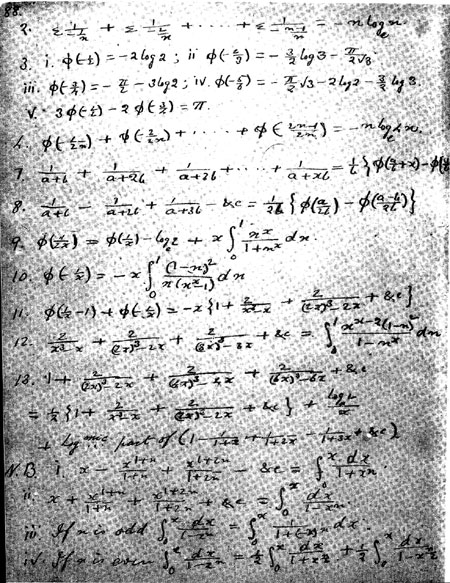 88.
2. Σ 1/(-1/n) + Σ 1/(-2/n) + ···· + Σ 1/(-(n-1)/n) = -n log_e n.
3. i. φ(-1/2) = -2 log 2; ii φ(-2/3) = -3/2 log 3 - π/(2√3)
iii. φ(-3/4) = -π/2 - 3 log 2; iv. φ(-5/6) = -π/2 √3 - 2 log 2 - 3/2 log 3.
V. 3φ(-1/4) - 2φ(-1/2) = π.
φ(-1/2n) + φ(-2/2n) + ····· + φ(-(2n-1)/2n) = -n log_e 2n.
7. 1/(a+b) + 1/(a+2b) + 1/(a+3b) + ···· + 1/(a+xb) = 1/b {φ(a/b + x) - φ(
8. 1/(a+b) - 1/(a+2b) + 1/(a+3b) - &c = 1/2b {φ(a/2b) - φ((a-b)/2b)}
9. φ(1/2x) = φ(1/x) - log_e 2 + x ∫₀¹ n^x/(1+n^x) dn.
10. φ(-1/x) = -x ∫₀¹ (1-n)²/(n(n^x-1)) dn
11. φ(1/x - 1) + φ(-1/x) = -x {1 + 2/(x³-x) + 2/((2x)³-2x) + &c}
12. 2/(x³-x) + 2/((2x)³-2x) + 2/((3x)³-3x) + &c = ∫₀¹ n^(x-2)(1-n)²/(1-n^x) dn
13. 1 + 2/((2x)³-2x) + 2/((4x)³-4x) + 2/((6x)³-6x) + &c
= 1/2 {1 + 2/(x³-x) + 2/((2x)³-2x) + &c} + log 2/x
+ Log^mic part of (1 - 1/(1+x) + 1/(1+2x) - 1/(1+3x) + &c)
N.B. i. x - x^(1+n)/(1+n) + x^(1+2n)/(1+2n) - &c = ∫₀ˣ dx/(1+x^n).
ii. x + x^(1+n)/(1+n) + x^(1+2n)/(1+2n) + &c = ∫₀ˣ dx/(1-x^n)
iii If n is odd ∫₀ˣ dx/(1-x^n) = ∫₀ˣ 1/(1+(-x)^n) dx.
iv. If n is even ∫₀ˣ dx/(1-x^n) = 1/2 ∫₀ˣ dx/(1+x^(n/2)) + 1/2 ∫₀ˣ dx/(1-x^(n/2))